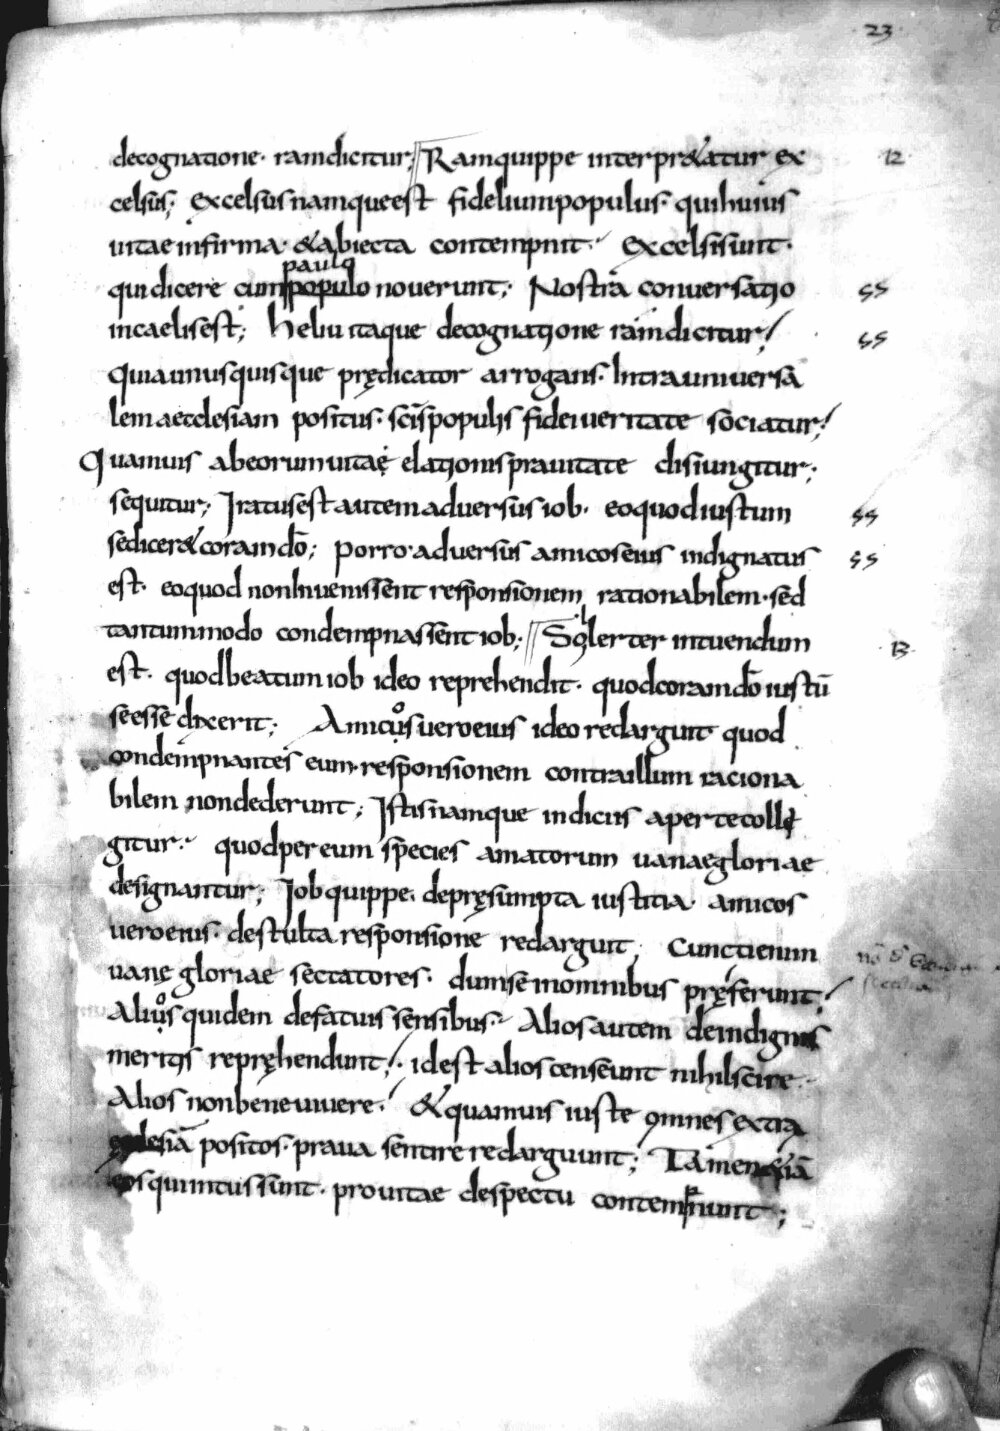 23
decognatione· ramdicitur; Ramquippe interpr&atur ex 12
celsus; excelsusnamqueest fideliumpopulus· quihuius
uitaeinfirma· &abiecta contempnit· excelsisunt·
quidicere cumpopulo nouerunt; Nostra conuersatio ss
paulo
incaelisest; heliu itaque decognatione ramdicitur ss
quiaunusquisque prędicator arrogans· Intrauniuersa
lemaecclesiam positus· scīspopulis fideiueritate sociatur
Quamuis abeorumuitaę elationisprauitate disiungitur;
sequitur; Iratusestautemaduersusiob· eoquodiustum ss
sedicer&coramdō; porro·aduersus amicoseius indignatus ss
est· eoquod nonInuenissent responsionem rationabilem·sed
tantummodo condempnassent iob; Solerter intuendum 13
est· quodbeatumiob ideo reprehendit· quodcoramdō iustū
seesse dixerit; Amicusueroeius ideo redarguit quod
condempnantes eum·responsionem contraillum raciona
bilem nondederunt; Istisnamque indiciis apertecollę
gitur· quodpereum species amatorum uanaegloriae
designantur; Iobquippe· depręsumpta iustitia· amicos
ueroeius· destulta responsione redarguit; Cunctienim
uanę gloriae sectatores· dumseinomnibus pręferunt
Aliusquidem defatuis sensibus· Aliosautem deindignis
meritis repręhendunt· idest alioscenseunt nihilscire·
Alios nonbeneuiuere· &quamuis iuste omnesextra
ęcclesiā positos· praua sentire redarguunt; Tamen&iā
eosquiintussunt· prouitae despectu contempnunt;